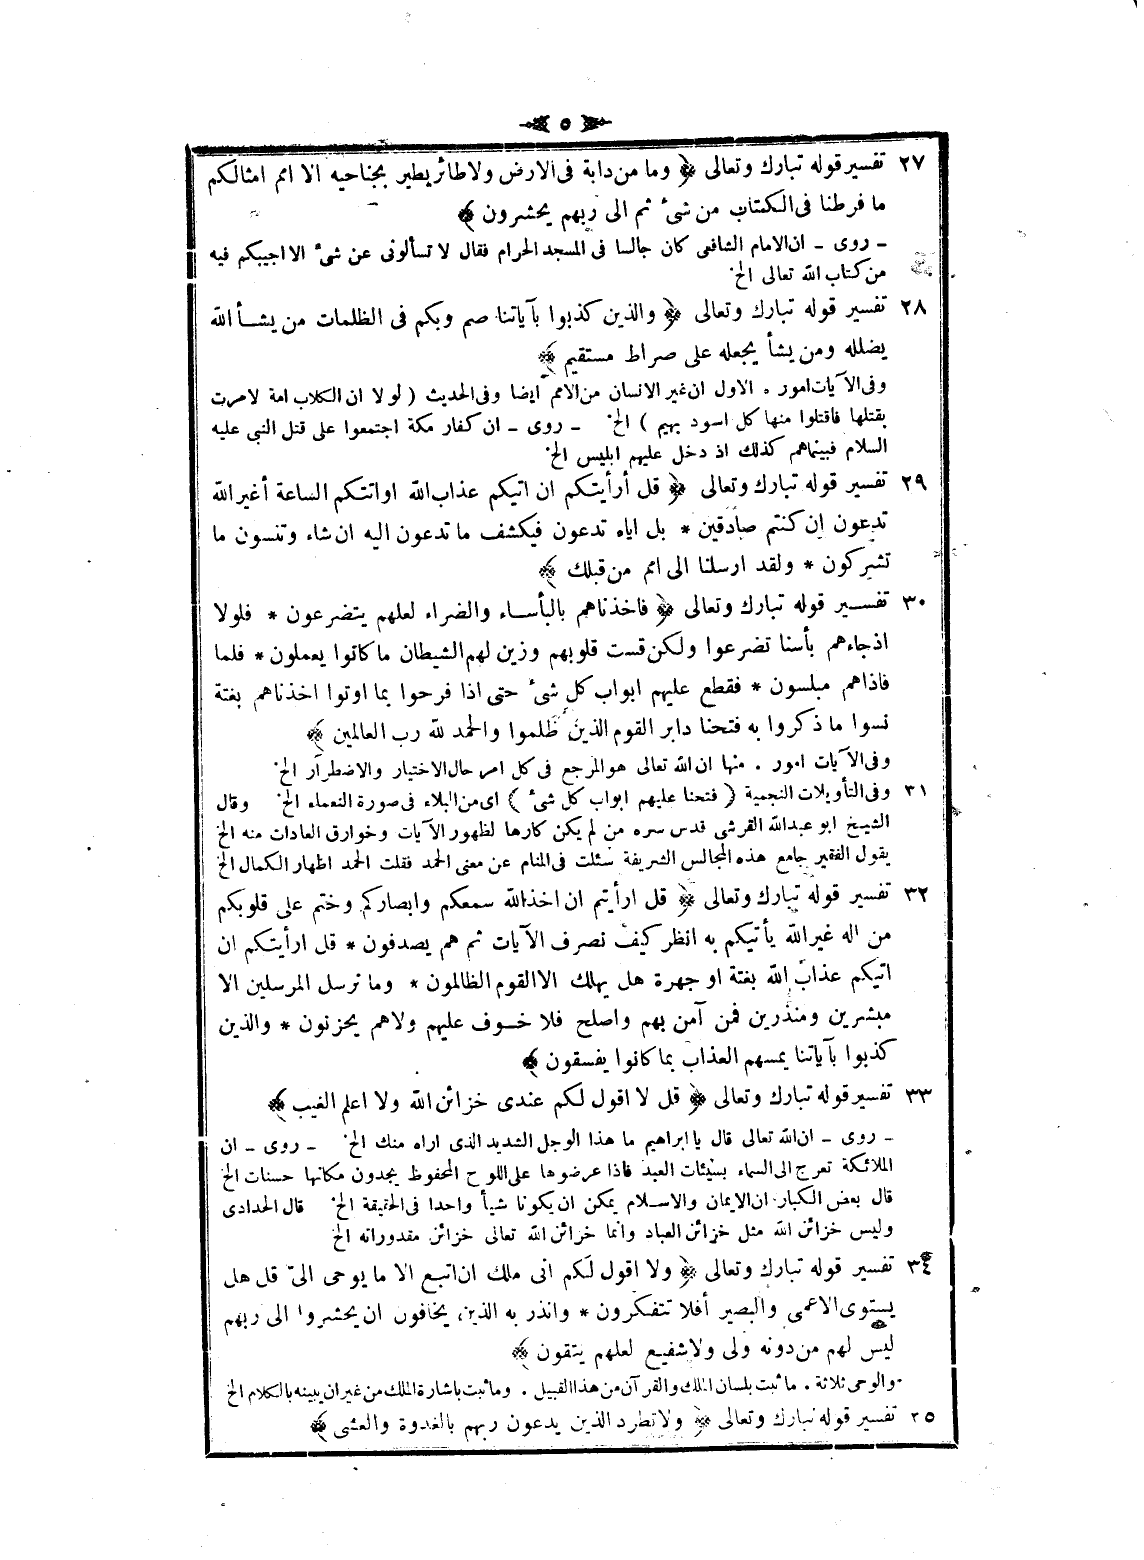 ٥
٢٧ تفسير قوله تبارك وتعالى ﴿ وما من دابة فى الارض ولا طائر يطير بجناحيه الا امم امثالكم
ما فرطنا فى الكتاب من شئ ثم الى ربهم يحشرون ﴾
ـ روى ـ ان الامام الشافعى كان جالسا فى المسجد الحرام فقال لا تسألونى عن شئ الا اجيبكم فيه
من كتاب الله تعالى الخ
٢٨ تفسير قوله تبارك وتعالى ﴿ والذين كذبوا بآياتنا صم وبكم فى الظلمات من يشأ الله
يضلله ومن يشأ يجعله على صراط مستقيم ﴾
وفى الآيات امور . الاول ان غير الانسان من الامم ايضا وفى الحديث ( لولا ان الكلاب امة لامرت
بقتلها فاقتلوا منها كل اسود بهيم ) الخ ـ روى ـ ان كفار مكة اجتمعوا على قتل النبى عليه
السلام فبينماهم كذلك اذ دخل عليهم ابليس الخ
٢٩ تفسير قوله تبارك وتعالى ﴿ قل أرأيتكم ان اتيكم عذاب الله او اتتكم الساعة أغير الله
تدعون إن كنتم صادقين * بل اياه تدعون فيكشف ما تدعون اليه ان شاء وتنسون ما
تشركون * ولقد ارسلنا الى امم من قبلك ﴾
٣٠ تفسير قوله تبارك وتعالى ﴿ فاخذناهم بالبأساء والضراء لعلهم يتضرعون * فلولا
اذجاءهم بأسنا تضرعوا ولكن قست قلوبهم وزين لهم الشيطان ما كانوا يعملون * فلما
فاذاهم مبلسون * فقطع عليهم ابواب كل شئ حتى اذا فرحوا بما اوتوا اخذناهم بغتة
نسوا ما ذكروا به فتحنا دابر القوم الذين ظلموا والحمد لله رب العالمين ﴾
وفى الآيات امور . منها ان الله تعالى هو المرجع فى كل امر حال الاختيار والاضطرار الخ
٣١ وفى التأويلات النجمية ( فتحنا عليهم ابواب كل شئ ) اى من البلاء فى صورة النعماء الخ وقال
الشيخ ابو عبدالله القرشى قدس سره من لم يكن كارها لظهور الآيات وخوارق العادات منه الخ
يقول الفقير جامع هذه المجالس الشريفة سئلت فى المنام عن معنى الحمد فقلت الحمد اظهار الكمال الخ
٣٢ تفسير قوله تبارك وتعالى ﴿ قل ارأيتم ان اخذ الله سمعكم وابصاركم وختم على قلوبكم
من اله غير الله يأتيكم به انظر كيف نصرف الآيات ثم هم يصدفون * قل ارأيتكم ان
اتيكم عذاب الله بغتة او جهرة هل يهلك الا القوم الظالمون * وما ترسل المرسلين الا
مبشرين ومنذرين فمن آمن بهم واصلح فلا خوف عليهم ولاهم يحزنون * والذين
كذبوا بآياتنا يمسهم العذاب بما كانوا يفسقون ﴾
٣٣ تفسير قوله تبارك وتعالى ﴿ قل لا اقول لكم عندى خزائن الله ولا اعلم الغيب ﴾
ـ روى ـ ان الله تعالى قال يا ابراهيم ما هذا الوجل الشديد الذى اراه منك الخ ـ روى ـ ان
الملائكة تعرج الى السماء بسيئات العبد فاذا عرضوها على اللوح المحفوظ يجدون مكانها حسنات الخ
قال بعض الكبار ان الايمان والاسلام يمكن ان يكونا شيأ واحدا فى الحقيقة الخ قال الحدادى
وليس خزائن الله مثل خزائن العباد وانما خزائن الله تعالى خزائن مقدوراته الخ
٣٤ تفسير قوله تبارك وتعالى ﴿ ولا اقول لكم انى ملك ان اتبع الا ما يوحى الىّ قل هل
يستوى الاعمى والبصير أفلا تتفكرون * وانذر به الذين يخافون ان يحشروا الى ربهم
ليس لهم من دونه ولى ولا شفيع لعلهم يتقون ﴾
والوحى ثلاثة . ما ثبت بلسان الملك والقرآن من هذا القبيل . وما ثبت باشارة الملك من غير ان يبينه بالكلام الخ
٣٥ تفسير قوله تبارك وتعالى ﴿ ولا تطرد الذين يدعون ربهم بالغدوة والعشى ﴾